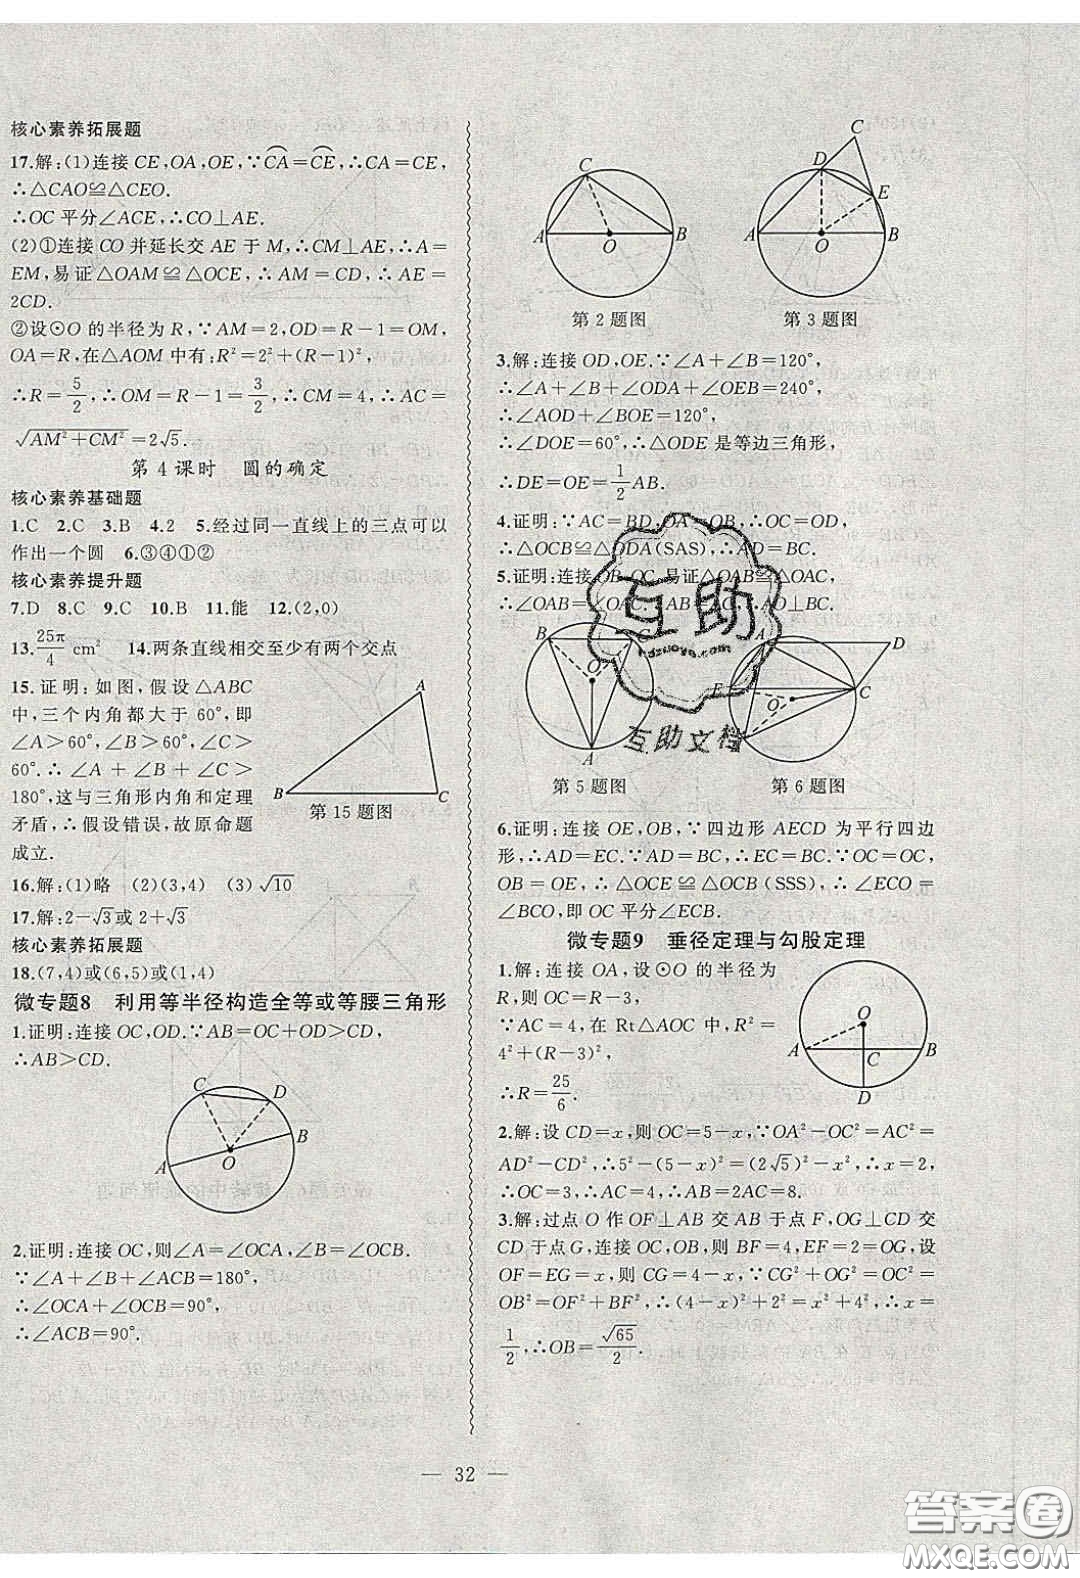 核心素养拓展题
17.解:(1)连接 CE,OA,OE,∵⌒CA=⌒CE,∴CA=CE,
∴△CAO≌△CEO.
∴OC 平分∠ACE,∴CO⊥AE.
(2)①连接 CO 并延长交 AE 于 M,∴CM⊥AE,∴A=
EM,易证△OAM≌△OCE,∴AM=CD,∴AE=
2CD.
②设⊙O 的半径为 R,∵AM=2,OD=R-1=OM,
OA=R,在△AOM 中有:R²=2²+(R-1)²,
∴R=5/2,∴OM=R-1=3/2,∴CM=4,∴AC=
√(AM²+CM²)=2√5.
第 4 课时 圆的确定
核心素养基础题
1.C 2.C 3.B 4.2 5.经过同一直线上的三点可以
作出一个圆 6.③④①②
核心素养提升题
7.D 8.C 9.C 10.B 11.能 12.(2,0)
13.25π/4 cm² 14.两条直线相交至少有两个交点
15.证明:如图,假设△ABC
中,三个内角都大于 60°,即
∠A>60°,∠B>60°,∠C>
60°.∴∠A+∠B+∠C>
180°,这与三角形内角和定理
矛盾,∴假设错误,故原命题
成立.
A
B
C
第15题图
16.解:(1)略 (2)(3,4) (3)√10
17.解:2-√3或2+√3
核心素养拓展题
18.(7,4)或(6,5)或(1,4)
微专题8 利用等半径构造全等或等腰三角形
1.证明:连接 OC,OD.∵AB=OC+OD>CD,
∴AB>CD.
C
D
B
A
O
2.证明:连接 OC,则∠A=∠OCA,∠B=∠OCB.
∵∠A+∠B+∠ACB=180°,
∴∠OCA+∠OCB=90°,
∴∠ACB=90°.
C
A
B
O
第2题图
C
D
E
A
B
O
第3题图
3.解:连接 OD,OE.∵∠A+∠B=120°,
∴∠A+∠B+∠ODA+∠OEB=240°,
∴∠AOD+∠BOE=120°,
∴∠DOE=60°,∴△ODE 是等边三角形,
∴DE=OE=1/2AB.
4.证明:∵AC=BD,OA=OB,∴OC=OD,
∴△OCB≌△ODA(SAS),∴AD=BC.
5.证明:连接 OB,OC,易证△OAB≌△OAC,
∴∠OAB=∠OAC.∴AO⊥BC.
B
C
O
A
第5题图
A
D
E
C
O
第6题图
互助
hdzuoye.com
互助文档
6.证明:连接 OE,OB,∵四边形 AECD 为平行四边
形,∴AD=EC.∵AD=BC,∴EC=BC.∵OC=OC,
OB=OE,∴△OCE≌△OCB(SSS),∴∠ECO=
∠BCO,即 OC 平分∠ECB.
微专题9 垂径定理与勾股定理
1.解:连接 OA,设⊙O 的半径为
R,则 OC=R-3,
∵AC=4,在 Rt△AOC 中,R²=
4²+(R-3)²,
∴R=25/6.
O
A
C
B
D
2.解:设 CD=x,则 OC=5-x,∵OA²-OC²=AC²=
AD²-CD²,∴5²-(5-x)²=(2√5)²-x²,∴x=2,
∴OC=3,AC=4,∴AB=2AC=8.
3.解:过点 O 作 OF⊥AB 交 AB 于点 F,OG⊥CD 交
CD 于点 G,连接 OC,OB,则 BF=4,EF=2=OG,设
OF=EG=x,则 CG=4-x,∵CG²+OG²=OC²=
OB²=OF²+BF²,∴(4-x)²+2²=x²+4²,∴x=
1/2,∴OB=√65/2.
— 32 —
答案圈
MXQE.COM